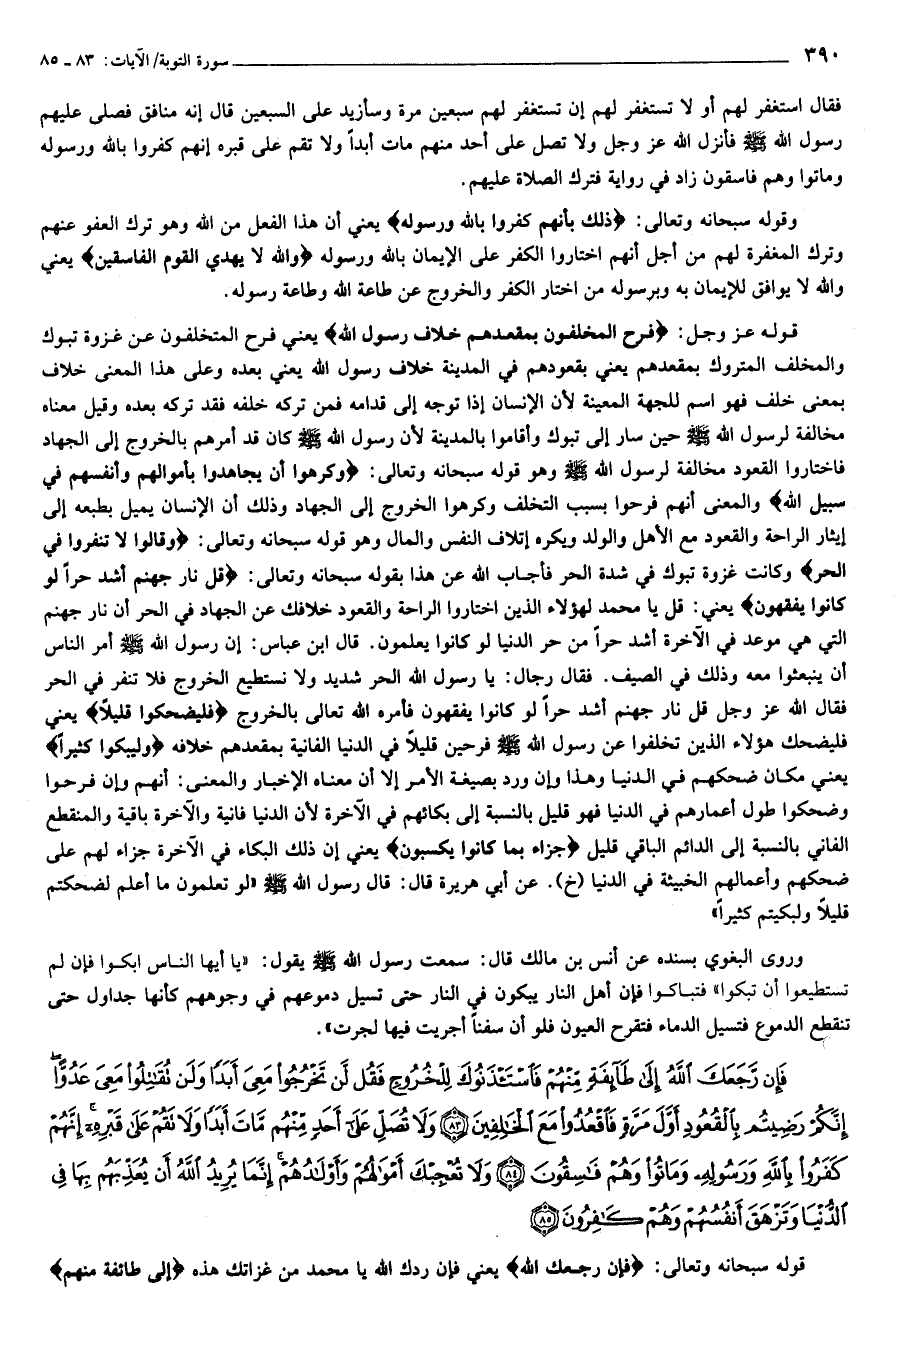 ٣٩٠ سورة التوبة/ الآيات: ٨٣ ـ ٨٥
فقال استغفر لهم أو لا تستغفر لهم إن تستغفر لهم سبعين مرة وسأزيد على السبعين قال إنه منافق فصلى عليهم
رسول الله ﷺ فأنزل الله عز وجل ولا تصل على أحد منهم مات أبداً ولا تقم على قبره إنهم كفروا بالله ورسوله
وماتوا وهم فاسقون زاد في رواية فترك الصلاة عليهم.
وقوله سبحانه وتعالى: ﴿ذلك بأنهم كفروا بالله ورسوله﴾ يعني أن هذا الفعل من الله وهو ترك العفو عنهم
وترك المغفرة لهم من أجل أنهم اختاروا الكفر على الإيمان بالله ورسوله ﴿والله لا يهدي القوم الفاسقين﴾ يعني
والله لا يوافق للإيمان به وبرسوله من اختار الكفر والخروج عن طاعة الله وطاعة رسوله.
قوله عز وجل: ﴿فرح المخلفون بمقعدهم خلاف رسول الله﴾ يعني فرح المتخلفون عن غزوة تبوك
والمخلف المتروك بمقعدهم يعني بقعودهم في المدينة خلاف رسول الله يعني بعده وعلى هذا المعنى خلاف
بمعنى خلف فهو اسم للجهة المعينة لأن الإنسان إذا توجه إلى قدامه فمن تركه خلفه فقد تركه بعده وقيل معناه
مخالفة لرسول الله ﷺ حين سار إلى تبوك وأقاموا بالمدينة لأن رسول الله ﷺ كان قد أمرهم بالخروج إلى الجهاد
فاختاروا القعود مخالفة لرسول الله ﷺ وهو قوله سبحانه وتعالى: ﴿وكرهوا أن يجاهدوا بأموالهم وأنفسهم في
سبيل الله﴾ والمعنى أنهم فرحوا بسبب التخلف وكرهوا الخروج إلى الجهاد وذلك أن الإنسان يميل بطبعه إلى
إيثار الراحة والقعود مع الأهل والولد ويكره إتلاف النفس والمال وهو قوله سبحانه وتعالى: ﴿وقالوا لا تنفروا في
الحر﴾ وكانت غزوة تبوك في شدة الحر فأجاب الله عن هذا بقوله سبحانه وتعالى: ﴿قل نار جهنم أشد حراً لو
كانوا يفقهون﴾ يعني: قل يا محمد لهؤلاء الذين اختاروا الراحة والقعود خلافك عن الجهاد في الحر أن نار جهنم
التي هي موعد في الآخرة أشد حراً من حر الدنيا لو كانوا يعلمون. قال ابن عباس: إن رسول الله ﷺ أمر الناس
أن ينبعثوا معه وذلك في الصيف. فقال رجال: يا رسول الله الحر شديد ولا نستطيع الخروج فلا تنفر في الحر
فقال الله عز وجل قل نار جهنم أشد حراً لو كانوا يفقهون فأمره الله تعالى بالخروج ﴿فليضحكوا قليلاً﴾ يعني
فليضحك هؤلاء الذين تخلفوا عن رسول الله ﷺ فرحين قليلاً في الدنيا الفانية بمقعدهم خلافه ﴿وليبكوا كثيراً﴾
يعني مكان ضحكهم في الدنيا وهذا وإن ورد بصيغة الأمر إلا أن معناه الإخبار والمعنى: أنهم وإن فرحوا
وضحكوا طول أعمارهم في الدنيا فهو قليل بالنسبة إلى بكائهم في الآخرة لأن الدنيا فانية والآخرة باقية والمنقطع
الفاني بالنسبة إلى الدائم الباقي قليل ﴿جزاء بما كانوا يكسبون﴾ يعني إن ذلك البكاء في الآخرة جزاء لهم على
ضحكهم وأعمالهم الخبيثة في الدنيا (خ). عن أبي هريرة قال: قال رسول الله ﷺ «لو تعلمون ما أعلم لضحكتم
قليلاً ولبكيتم كثيراً»
وروى البغوي بسنده عن أنس بن مالك قال: سمعت رسول الله ﷺ يقول: «يا أيها الناس ابكوا فإن لم
تستطيعوا أن تبكوا» فتباكوا فإن أهل النار يبكون في النار حتى تسيل دموعهم في وجوههم كأنها جداول حتى
تنقطع الدموع فتسيل الدماء فتقرح العيون فلو أن سفناً أجريت فيها لجرت».
فَإِن رَّجَعَكَ ٱللَّهُ إِلَىٰ طَآئِفَةٍ مِّنْهُمْ فَٱسْتَـْٔذَنُوكَ لِلْخُرُوجِ فَقُل لَّن تَخْرُجُواْ مَعِىَ أَبَدًا وَلَن تُقَٰتِلُواْ مَعِىَ عَدُوًّا ۖ
إِنَّكُمْ رَضِيتُم بِٱلْقُعُودِ أَوَّلَ مَرَّةٍ فَٱقْعُدُواْ مَعَ ٱلْخَٰلِفِينَ ﴿٨٣﴾ وَلَا تُصَلِّ عَلَىٰٓ أَحَدٍ مِّنْهُم مَّاتَ أَبَدًا وَلَا تَقُمْ عَلَىٰ قَبْرِهِۦٓ ۖ إِنَّهُمْ
كَفَرُواْ بِٱللَّهِ وَرَسُولِهِۦ وَمَاتُواْ وَهُمْ فَٰسِقُونَ ﴿٨٤﴾ وَلَا تُعْجِبْكَ أَمْوَٰلُهُمْ وَأَوْلَٰدُهُمْ ۚ إِنَّمَا يُرِيدُ ٱللَّهُ أَن يُعَذِّبَهُم بِهَا فِى
ٱلدُّنْيَا وَتَزْهَقَ أَنفُسُهُمْ وَهُمْ كَٰفِرُونَ ﴿٨٥﴾
قوله سبحانه وتعالى: ﴿فإن رجعك الله﴾ يعني فإن ردك الله يا محمد من غزاتك هذه ﴿إلى طائفة منهم﴾